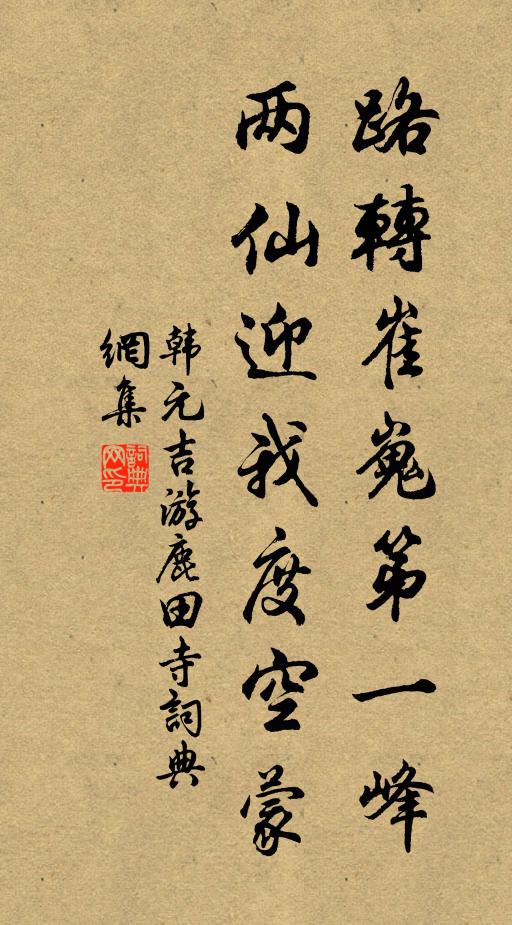 路轉崔嵬第一峰
两仙迎我度空蒙
韩元吉游鹿田寺詞典
網集
詞典网印